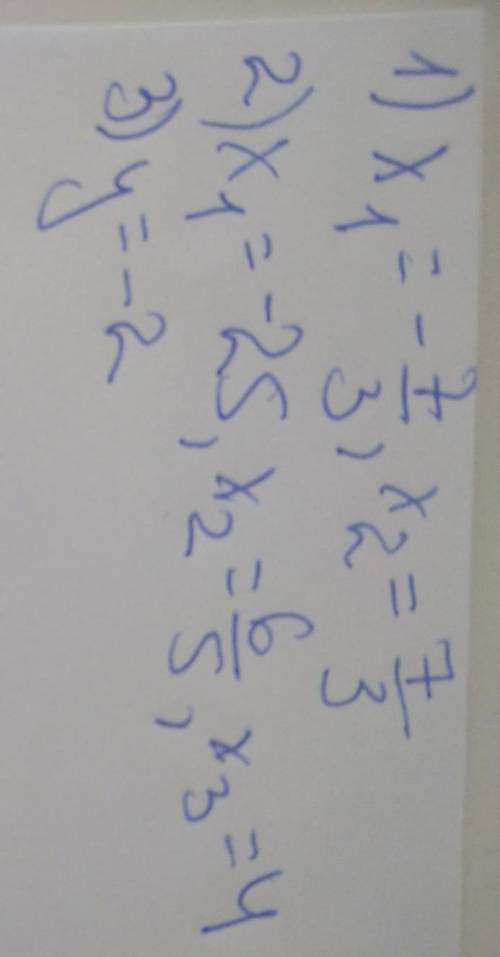 1) x₁ = -7/3, x₂ = 7/3
2) x₁ = -25, x₂ = 6/5, x₃ = 4
3) y = -2